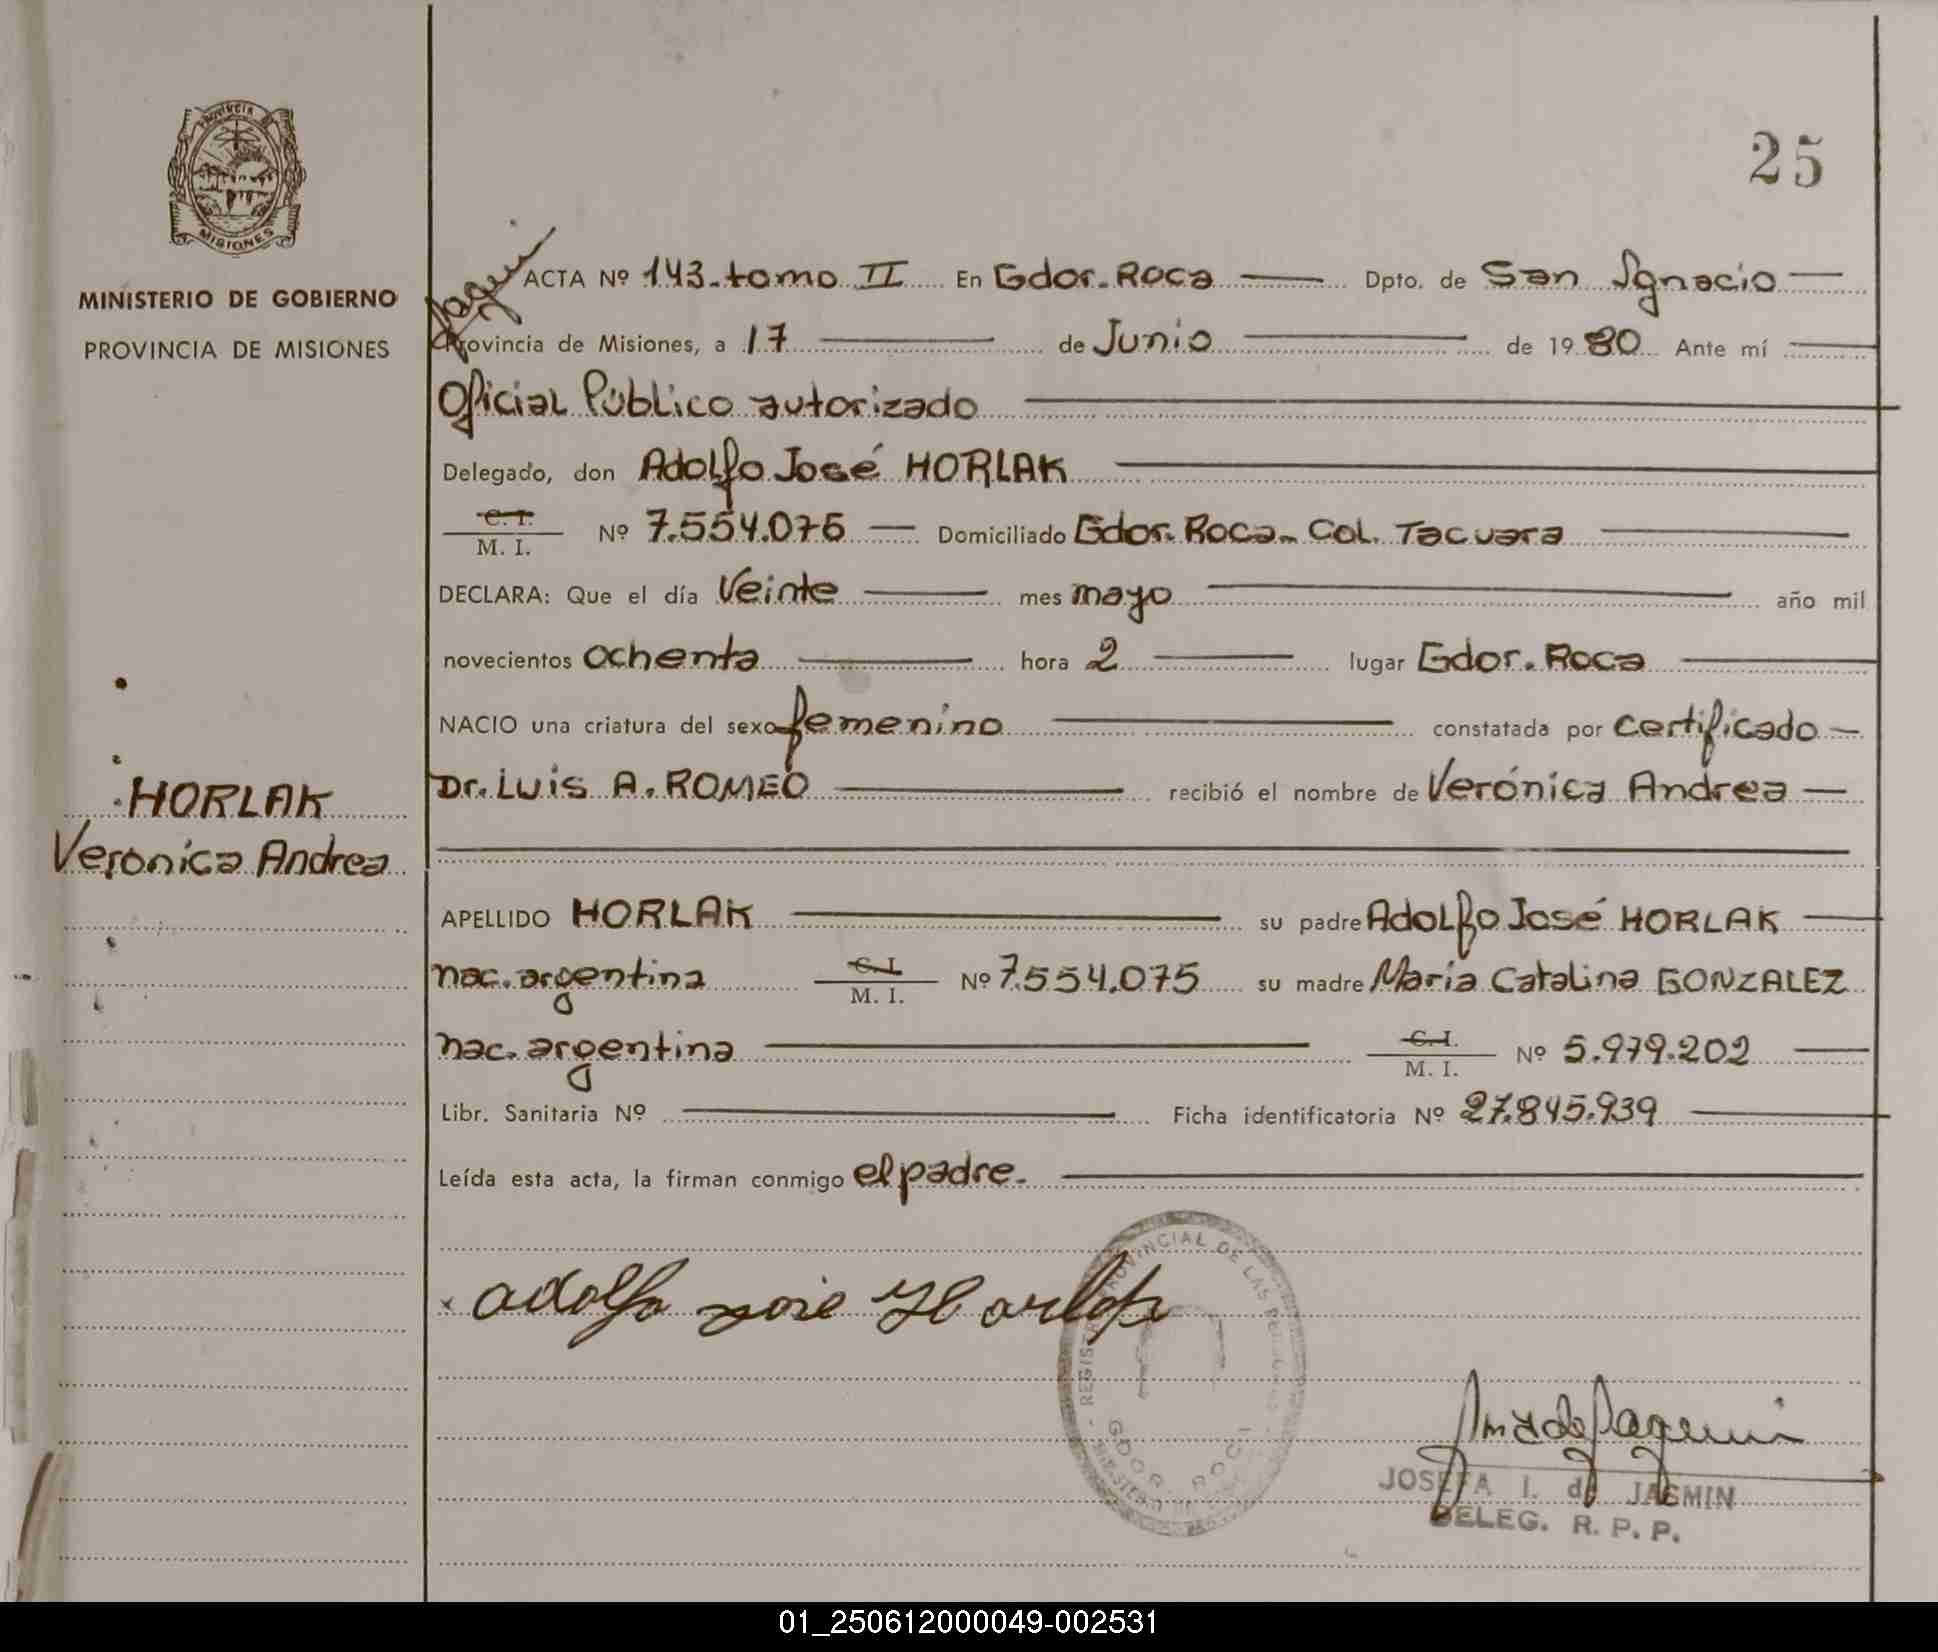 PROVINCIA
MISIONES
MINISTERIO DE GOBIERNO
PROVINCIA DE MISIONES
HORLAK
Veronica Andrea
25
ACTA Nº 143. tomo II En Gdor. Roca Dpto. de San Ignacio
Provincia de Misiones, a 17 de Junio de 1980 Ante mí
Oficial Público autorizado
Delegado, don Adolfo José HORLAK
C. I.
M. I. Nº 7.554.075 Domiciliado Gdor. Roca. Col. Tacuara
DECLARA: Que el día Veinte mes mayo año mil
novecientos ochenta hora 2 lugar Gdor. Roca
NACIO una criatura del sexo femenino constatada por certificado
Dr. Luis A. ROMEO recibió el nombre de Verónica Andrea
APELLIDO HORLAK su padre Adolfo José HORLAK
nac. argentina C. I. M. I. Nº 7.554.075 su madre María Catalina GONZALEZ
nac. argentina C. I. M. I. Nº 5.979.202
Libr. Sanitaria Nº Ficha identificatoria Nº 27.845.939
Leída esta acta, la firman conmigo el padre.
adolfo jose Horlak
REGISTRO PROVINCIAL DE LAS
GDOR. ROCA
JOSEFA I. de JASMIN
DELEG. R. P. P.
01_250612000049-002531